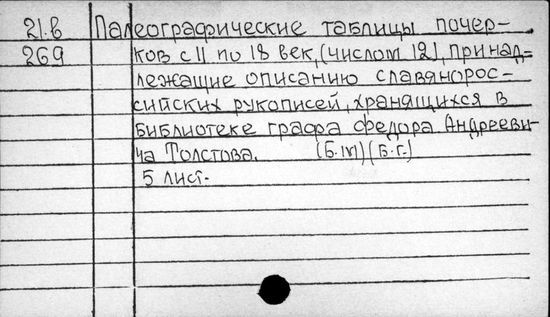 21.в Палеографические таблицы почер-
269 ков с 11 по 18 век, (числом 12), принад-
лежащие описанию славянорос-
сийских рукописей, хранящихся в
библиотеке графа Федора Андрееви-
ча Толстова. (Б.m) (Б.г.)
5 лист.